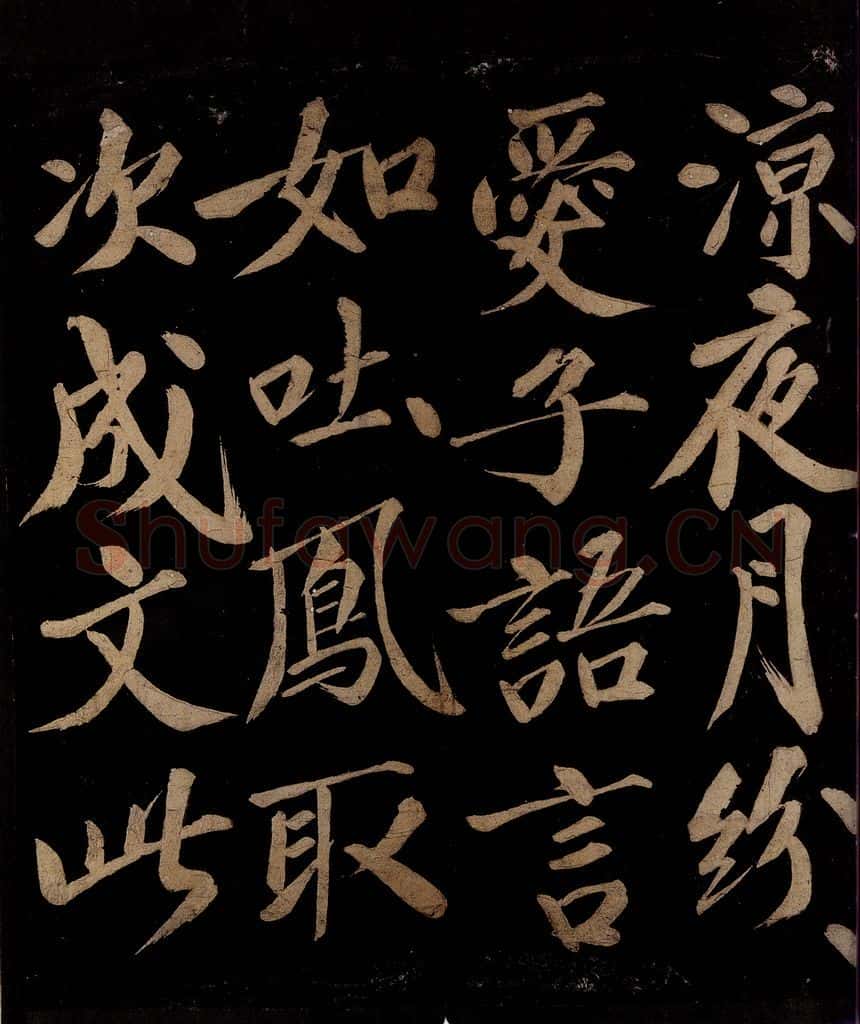 凉夜月紛〻
愛子語言
如吐〻鳳取
次成文此
Shufawang.CN